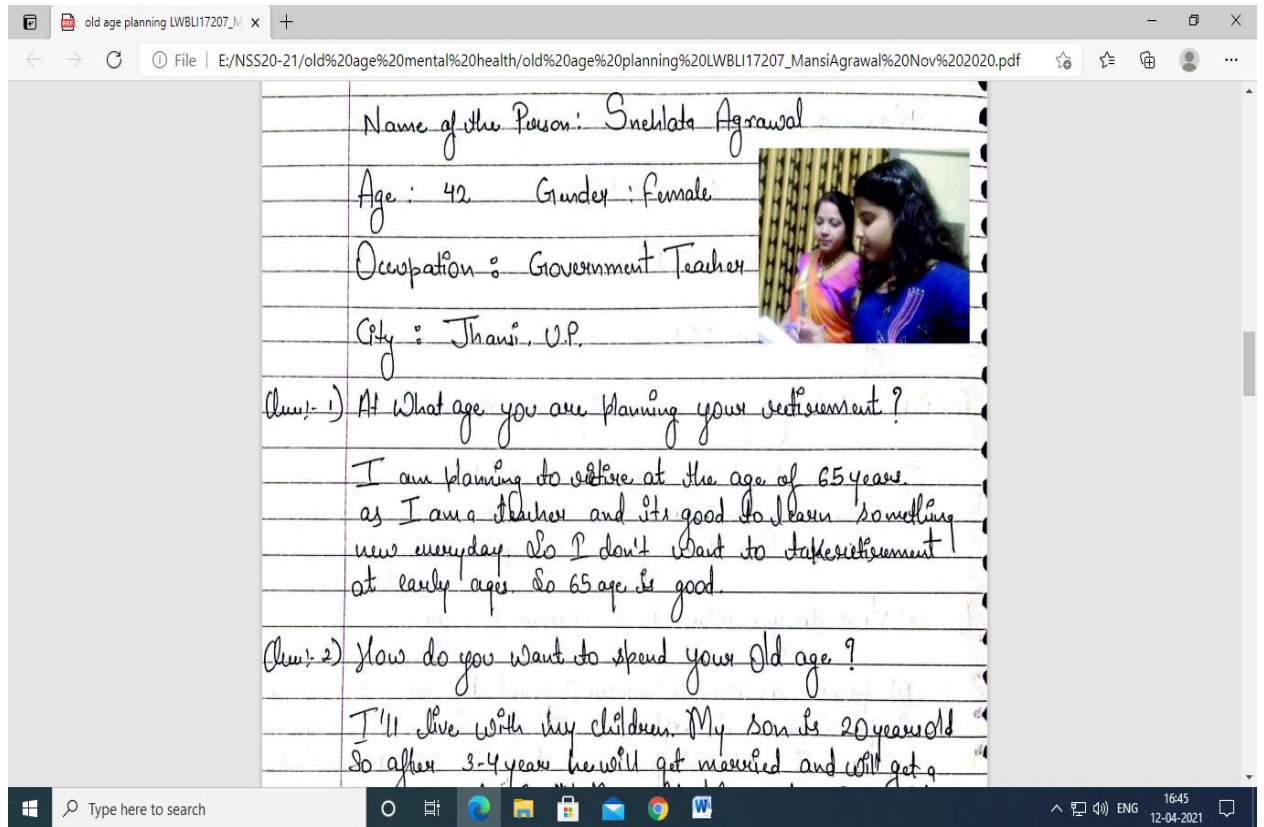 old age planning LWBLI17207_M
File E:/NSS20-21/old%20age%20mental%20health/old%20age%20planning%20LWBLI17207_MansiAgrawal%20Nov%202020.pdf
Name of the Person: Snehlata Agrawal
Age : 42 Gender : Female
Occupation : Government Teacher
City : Jhansi, U.P.
Ques:- 1) At What age you are planning your retirement ?
I am planning to retire at the age of 65 years.
as I am a teacher and its good to learn something
new everyday. So I don't want to take retirement
at early ages. So 65 age is good.
Ques:- 2) How do you want to spend your Old age ?
I'll live with my children. My son is 20 years old
So after 3-4 year he will get married and will get a
Type here to search
ENG
16:45
12-04-2021